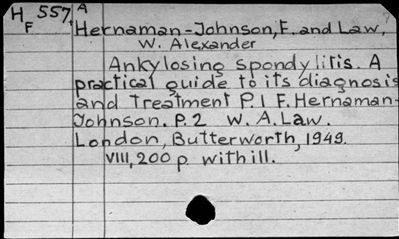 H 557. A
F
Hernaman-Johnson, F. and Law,
W. Alexander
Ankylosing spondylitis. A
practical guide to its diagnosis
and treatment P.1 F. Hernaman-
Johnson. P.2 W. A. Law.
London, Butterworth, 1949.
VIII, 200 p with ill.